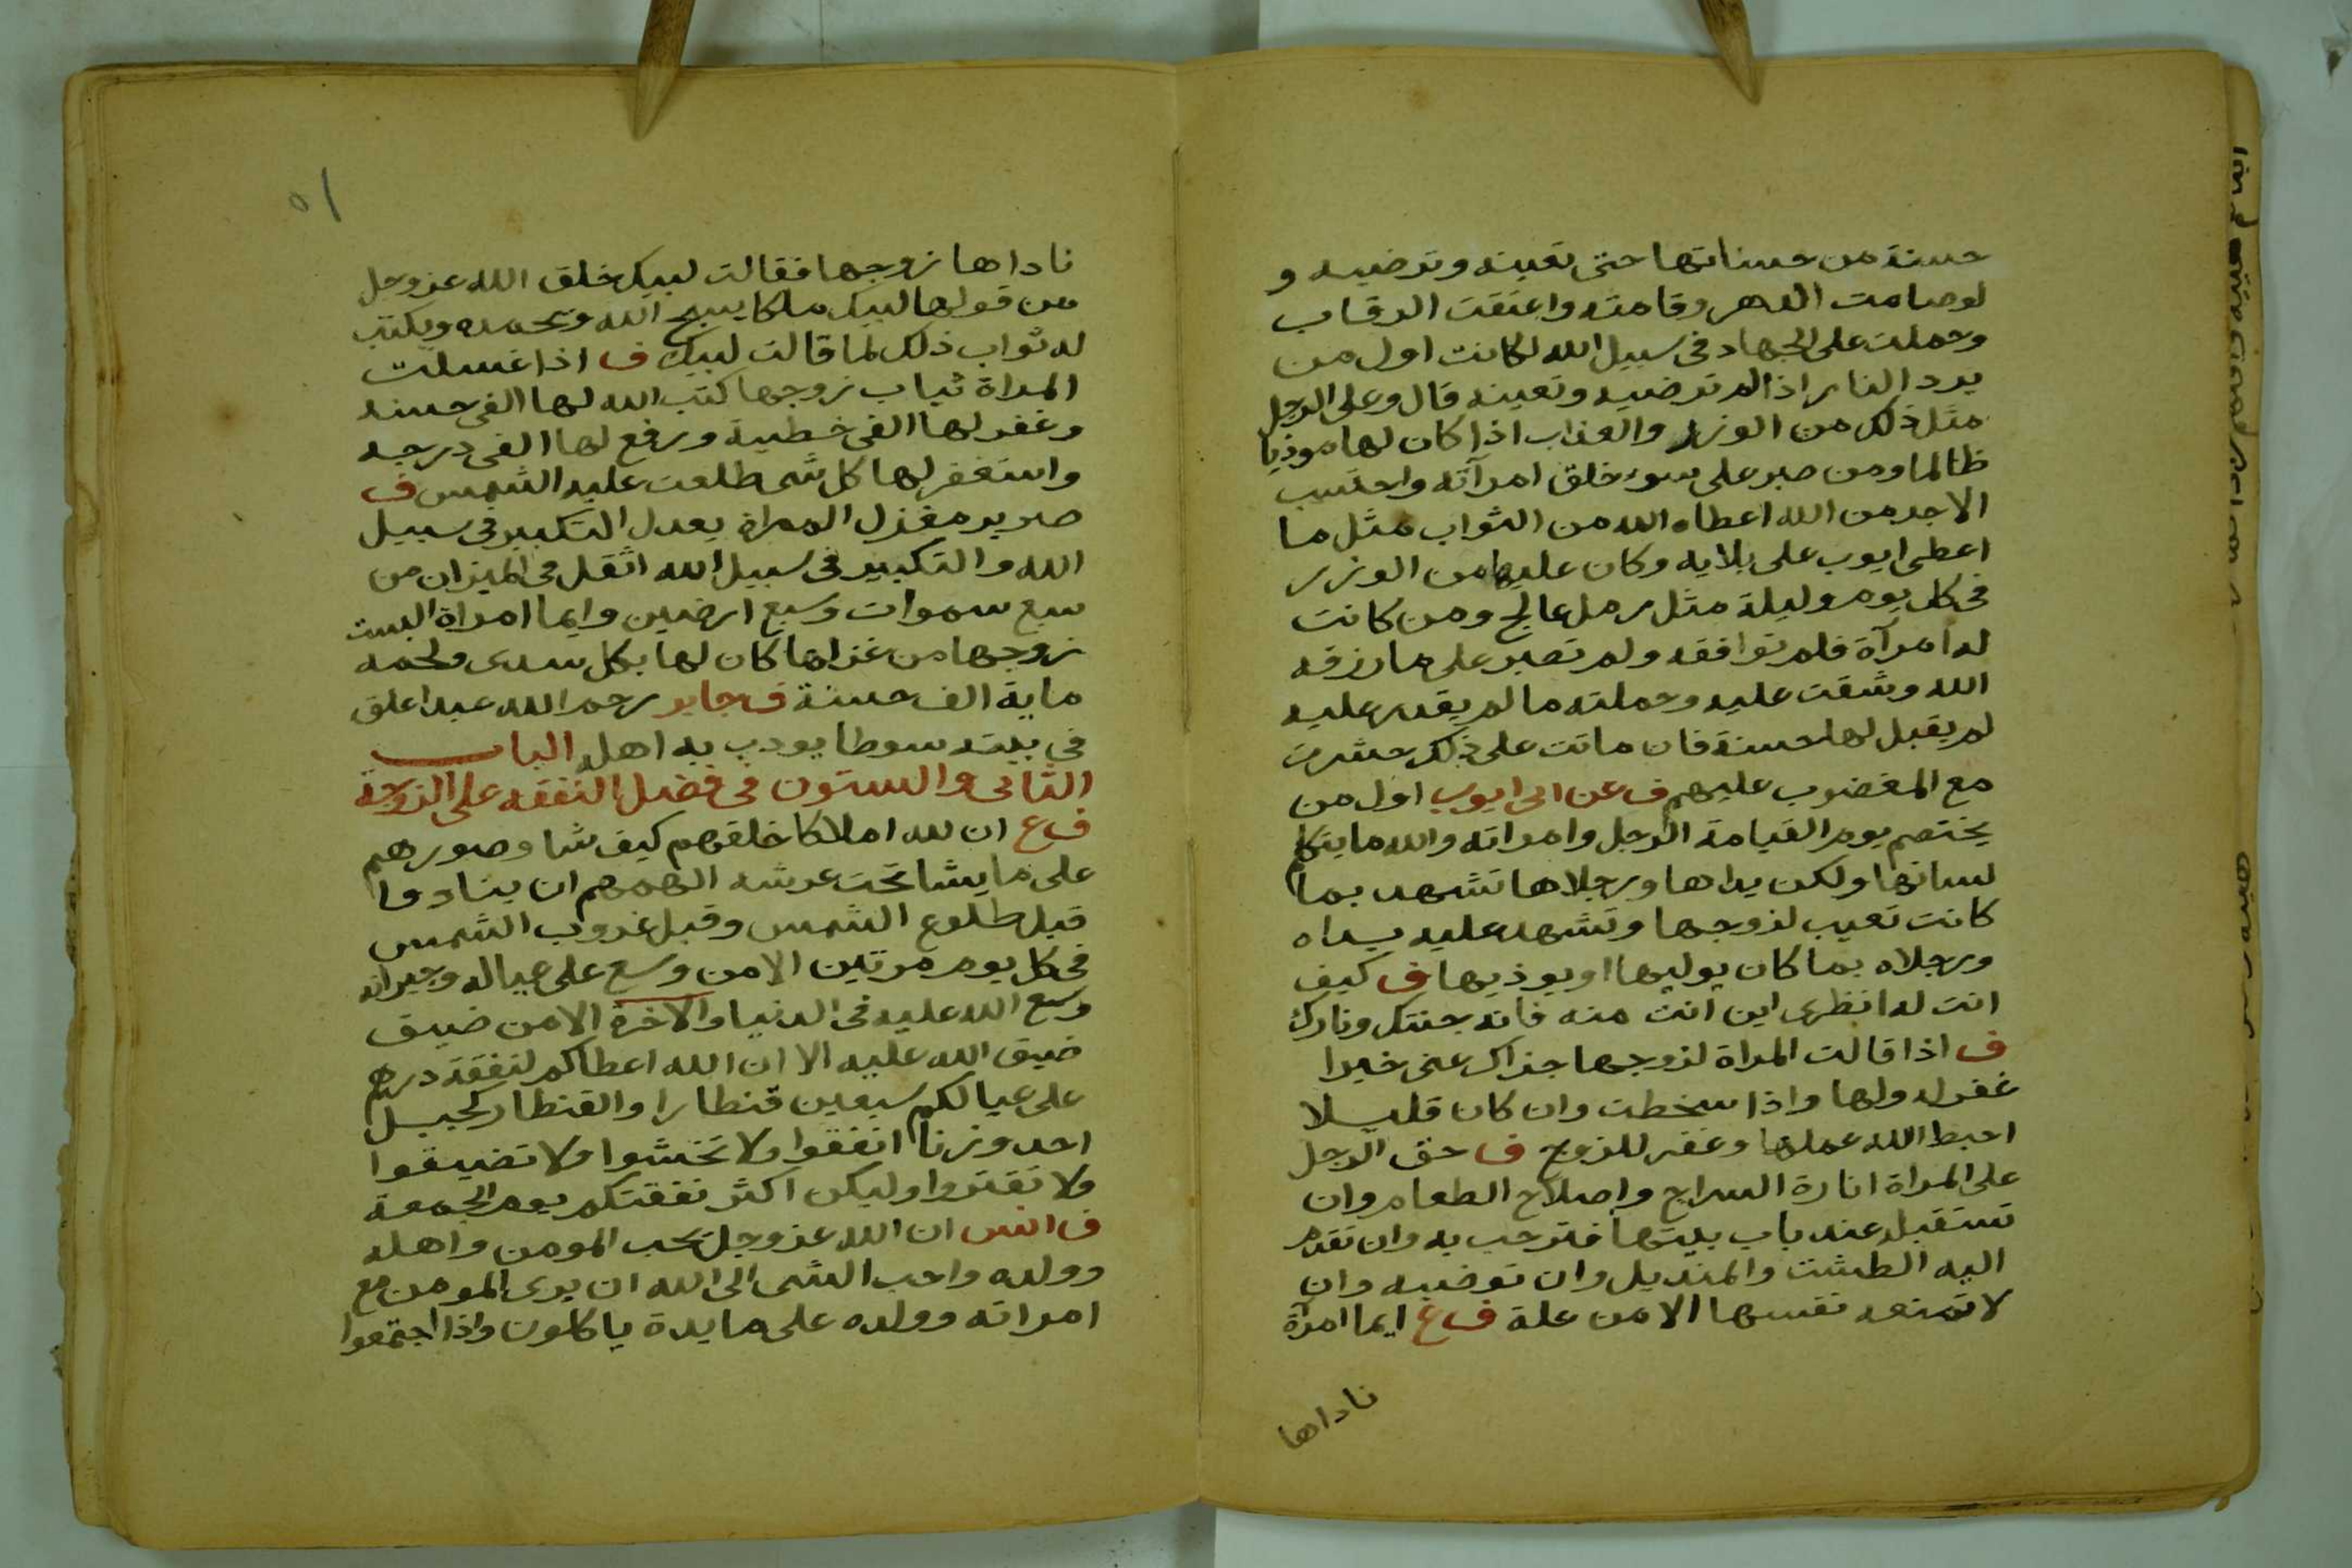 حسنة من حسناتها حتى تعينه وترضيه و
لوصامت الدهر وقامته واعتقت الرقاب
وحملت على الجهاد فى سبيل الله لكانت اول من
يرد النار اذا لم ترضيه وتعينه قال وعلى الرجل
مثل ذلك من الوزر والعذاب اذا كان لها موذيا
ظالما ومن صبر على سوء خلق امرآته واحتسب
الاجر من الله اعطاه الله من الثواب مثل ما
اعطى ايوب على بلايه وكان عليها من الوزر
فى كل يوم وليلة مثل رمل عالج ومن كانت
له امرآة فلم توافقه ولم تصبر على ما رزقه
الله وشقت عليه وحملته ما لم يقدر عليه
لم يقبل لها حسنة فان ماتت على ذلك حشرت
مع المغضوب عليهم ف عن ابى ايوب اول من
يختصم يوم القيامة الرجل وامراته والله ما يتكلم
لسانها ولكن يداها ورجلاها تشهد بما
كانت تعيب لزوجها وتشهد عليه يداه
ورجلاه بما كان يوليها او يوذيها ف كيف
انت له انظرى اين انت منه فانه جنتك ونارك
ف اذا قالت المراة لزوجها جزاك عنى خيرا
غفر له ولها واذا سخطت وان كان قليلا
احبط الله عملها وغفر للزوج ف حق الرجل
على المراة انارة السراج واصلاح الطعام وان
تستقبله عند باب بيتها فترحب به وان تقدم
اليه الطشت والمنديل وان توضيه وان
لا تمنعه نفسها الا من علة ف ع ايما امراة
ناداها
٥١
ناداها زوجها فقالت لبيك خلق الله عز وجل
من قولها لبيك ملكا يسبح الله ويحمده ويكتب
له ثواب ذلك لما قالت لبيك ف اذا غسلت
المراة ثياب زوجها كتب الله لها الفى حسنه
وغفر لها الفى خطية ورفع لها الفى درجه
واستغفر لها كل شى طلعت عليه الشمس ف
صرير مغزل المراة يعدل التكبير فى سبيل
الله والتكبير فى سبيل الله اثقل فى الميزان من
سبع سموات وسبع ارضين وايما امراة البست
زوجها من غزلها كان لها بكل سدى ولحمه
ماية الف حسنة ف جابر رحم الله عبدا علق
فى بيته سوطا يودب به اهله الباب
الثانى والستون فى فضل النفقه على الزوجة
ف ع ان لله املاكا خلقهم كيف شا وصورهم
على ما يشا تحت عرشه الهمهم ان ينادوا
قبل طلوع الشمس وقبل غروب الشمس
فى كل يوم مرتين الا من وسع على عياله وجيرانه
وسع الله عليه فى الدنيا والاخرة الا من ضيق
ضيق الله عليه الا ان الله اعطاكم لنفقة درهم
على عيالكم سبعين قنطارا والقنطار كجبل
احد وزنا انفقوا ولا تخشوا ولا تضيقوا
ولا تقتروا وليكن اكثر نفقتكم يوم الجمعة
ف انس ان الله عز وجل يحب المومن واهله
وولده واحب الشى الى الله ان يرى المومن مع
امراته وولده على مايدة ياكلون واذا اجتمعوا